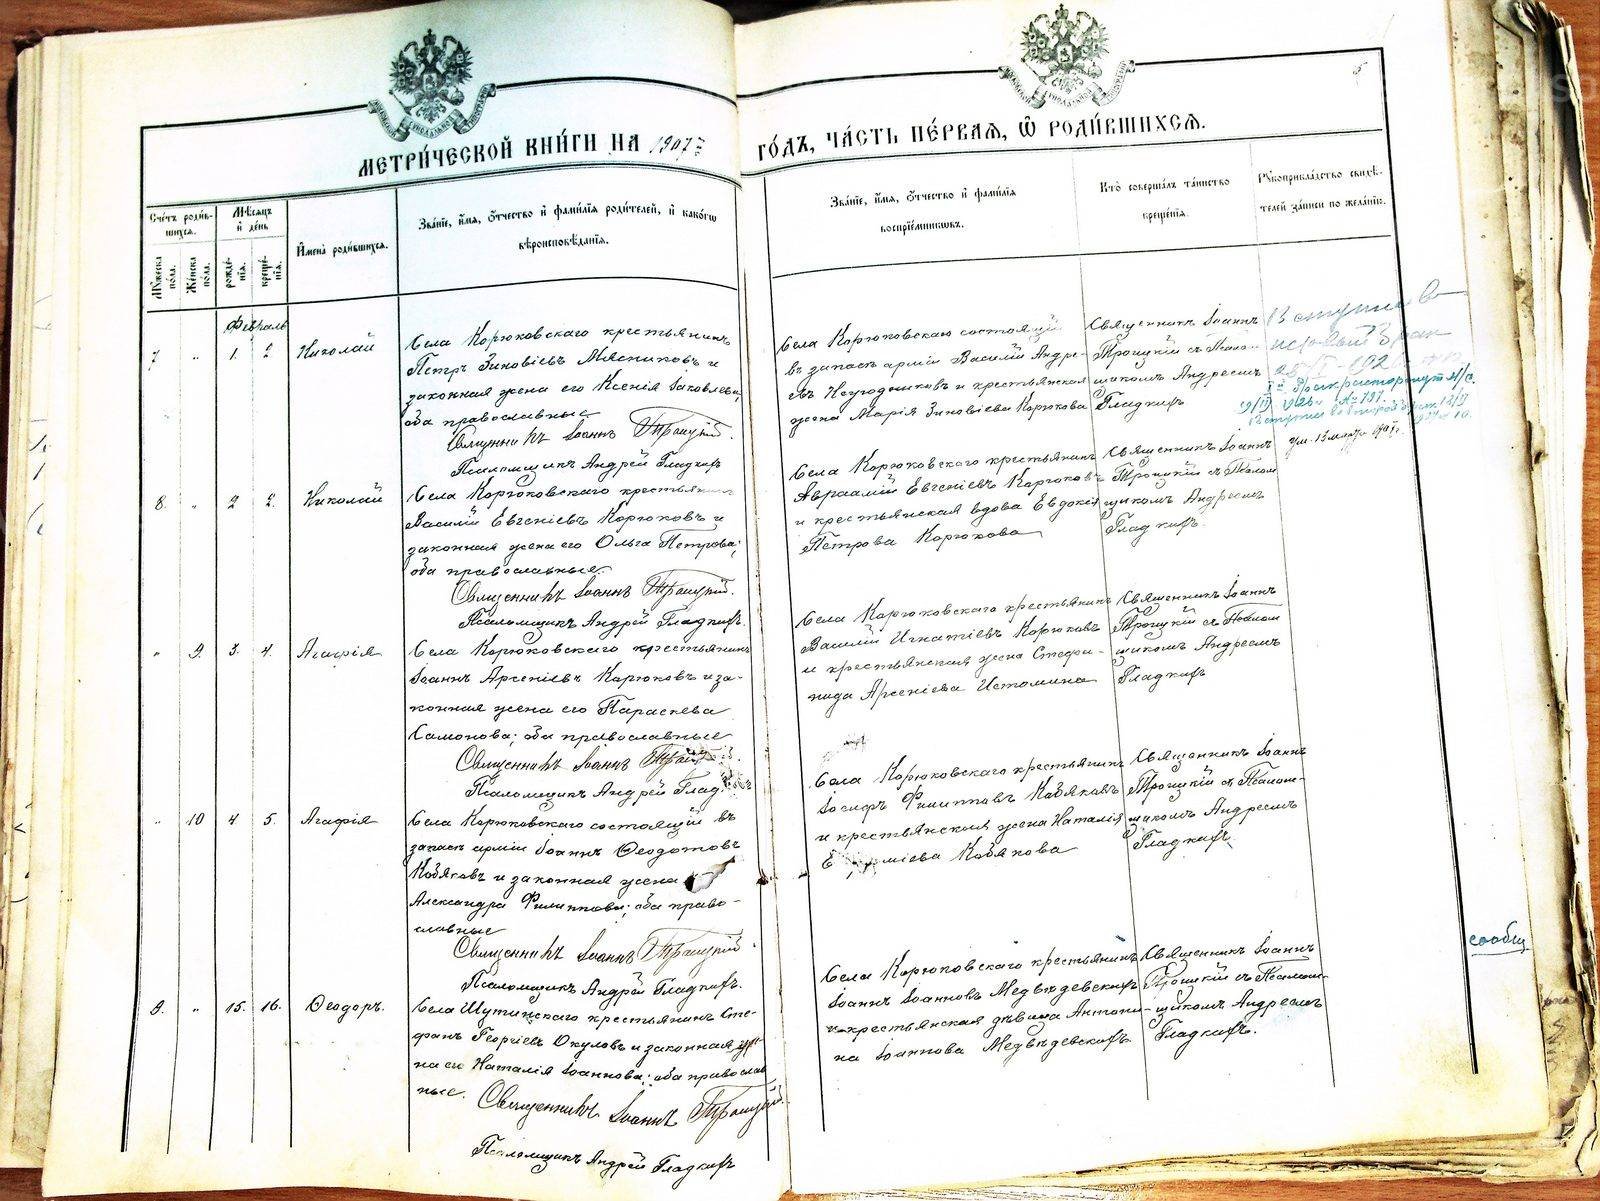 МЕТРИ́ЧЕСКОЙ КНИ́ГИ НА 1907 й
ГО́ДЪ, ЧА́СТЬ ПЕ́РВАЯ, Ѡ҆ РОДИ́ВШИХСЯ.
Сче́тъ роди́вшихся.
Мꙋ́жеска по́ла.
Же́нска по́ла.
Мѣ́сяцъ и҆ де́нь
рожде́нїѧ.
креще́нїѧ.
И҆мена̀ роди́вшихся.
Зва́нїе, и҆́мя, ѻ҆́тчество и҆ фами́лїя роди́телей, и҆ како́гѡ
вѣроисповѣ́данїя.
Зва́нїе, и҆́мя, ѻ҆́тчество и҆ фами́лїя
воспрїе́мниковъ.
Кто̀ соверша́лъ та́инство
креще́нїя.
Рꙋкоприкла́дство свидѣ́-
телей за́писи по жела́нїю.
Февраль
7 " 1. 2 Николай
Села Корюковскаго крестьянинъ
Петръ Зиновіевъ Мясниковъ и
законная жена его Ксенія Іаковлева;
оба православные
Священникъ Іоаннъ Троицкій.
Псаломщикъ Андрей Гладкихъ
Села Корюковскаго состоящій
въ запасѣ арміи Василій Андре-
евъ и крестьянская
жена Марія Зиновіева Корюкова
Священникъ Іоаннъ
Троицкій съ Псалом
щикомъ Андреемъ
Гладкихъ
Вступил в
первый брак
№ 131.
8. " 2 2. Николай
Села Корюковскаго крестьянинъ
Василій Евгеніевъ Корюковъ и
законная жена его Ольга Петрова;
оба православные.
Священникъ Іоаннъ Троицкій.
Псаломщикъ Андрей Гладкихъ.
Села Корюковскаго крестьянинъ
Авраамій Евгеніевъ Корюковъ
и крестьянская вдова Евдокія
Петрова Корюкова
Священникъ Іоаннъ
Троицкій съ Псалом
щикомъ Андреемъ
Гладкихъ.
ум. 13 марта 1907 г.
" 9. 3. 4. Агафія
Села Корюковскаго крестьянинъ
Іоаннъ Арсеніевъ Корюковъ и за-
конная жена его Параскева
Самонова; оба православные
Священникъ Іоаннъ Троицкій.
Псаломщикъ Андрей Гладкихъ
Села Корюковскаго крестьянинъ
Василій Игнатіевъ Корюковъ
и крестьянская жена Стефа-
нида Арсеніева Истомина
Священникъ Іоаннъ
Троицкій съ Псалом
щикомъ Андреемъ
Гладкихъ
" 10 4. 5. Агафія
Села Корюковскаго состоящій въ
запасѣ арміи Іоаннъ Ѳеодотовъ
Кобяковъ и законная жена
Александра Филиппова; оба право-
славные
Священникъ Іоаннъ Троицкій
Псаломщикъ Андрей Гладкихъ.
Села Корюковскаго крестьянинъ
Іосифъ Филипповъ Кобяковъ
и крестьянская жена Наталія
Кобякова
Священникъ Іоаннъ
Троицкій съ Псалом-
щикомъ Андреемъ
Гладкихъ.
сообщ
9. " 15. 16. Ѳеодоръ.
Села Шутинскаго крестьянинъ Сте-
фанъ Георгіевъ Окуловъ и законная же-
на его Наталія Іоаннова; оба православ
ные.
Священникъ Іоаннъ Троицкій.
Псаломщикъ Андрей Гладкихъ
Села Корюковскаго крестьянинъ
Іоаннъ Іоанновъ Медвѣдевскихъ
и крестьянская дѣвица Антони-
на Іоаннова Медвѣдевскихъ
Священникъ Іоаннъ
Троицкій съ Псалом-
щикомъ Андреемъ
Гладкихъ.